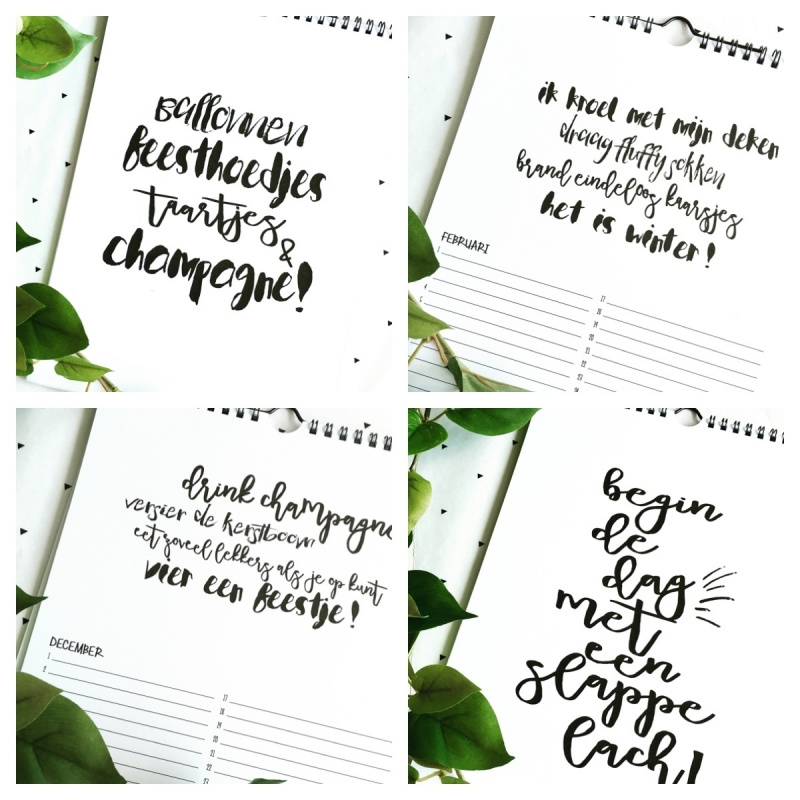 Ballonnen
feesthoedjes
taartjes
&
champagne!
ik kroel met mijn deken
draag fluffy sokken
brand eindeloos kaarsjes
het is winter!
FEBRUARI
1
17
18
19
20
21
22
23
drink champagne
versier de kerstboom
eet zoveel lekkers als je op kunt
vier een feestje!
DECEMBER
1
2
17
18
19
20
21
22
23
begin
de
dag
met
een
slappe
lach!